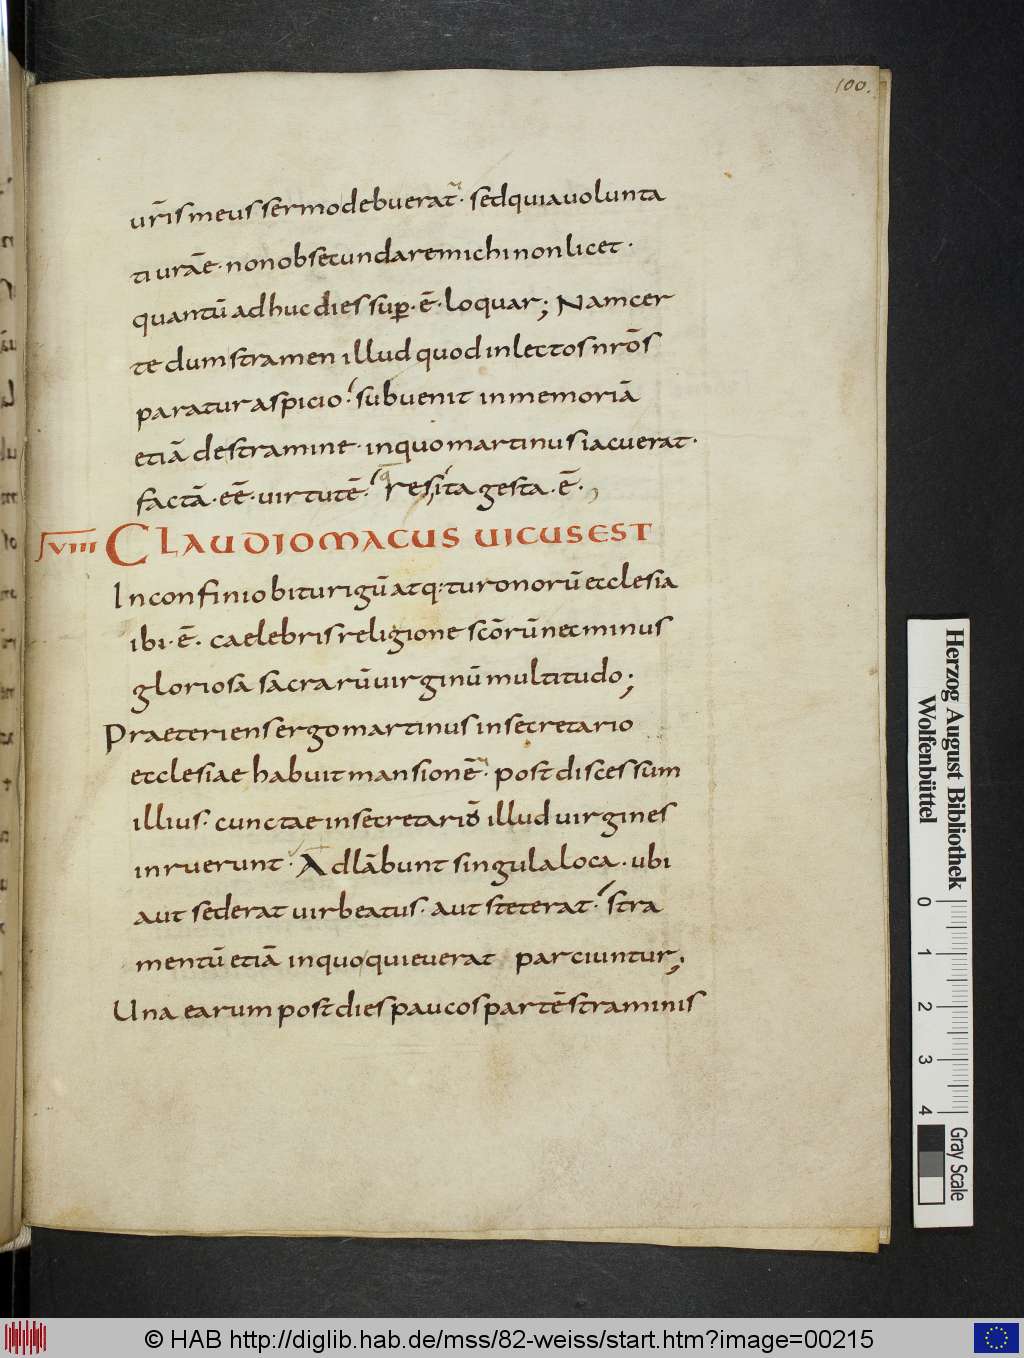 100.
ur̄is meus sermo debuerat · sed quia volunta
ti urāe · non obsecundare michi non licet ·
quantū ad huc dies sup̱ · ē · loquar ; Nam cer
te dum stramen illud quod in lectos nr̄os
paratur aspicio · subvenit in memoriā
etiā de stramine · in quo martinus iacuerat ·
factā · eē · virtutē · res ita gesta · ē ·
VIII CLAUDIOMACUS UICUS EST
In confinio biturigū atq; turonorū ecclesia
ibi · ē · caelebris religione scōrū nec minus
gloriosa sacrarū virginū multitudo ;
Praeteriens ergo martinus in secretario
ecclesiae habuit mansionē · post discessum
illius · cunctae in secretariō illud virgines
inruerunt · Adlābunt singula loca · ubi
aut sederat vir beatus · aut steterat · stra
mentū etiā in quo quieverat parciuntur ;
Una earum post dies paucos partē straminis
Herzog August Bibliothek
Wolfenbüttel
0 1 2 3 4
Gray Scale
© HAB http://diglib.hab.de/mss/82-weiss/start.htm?image=00215